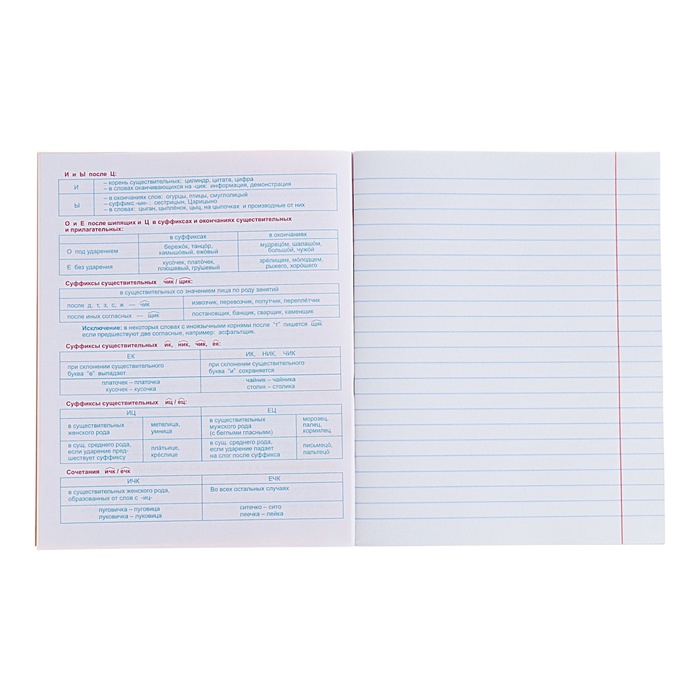 И и Ы после Ц:
И
– корень существительных: цилиндр, цитата, цифра
– в словах оканчивающихся на -ция: информация, демонстрация
Ы
– в окончаниях слов: огурцы, птицы, смуглолицый
– суффикс -ин-: сестрицын, Царицыно
– в словах: цыган, цыплёнок, цыц, на цыпочках и производные от них
О и Е после шипящих и Ц в суффиксах и окончаниях существительных
и прилагательных:
в суффиксах
в окончаниях
О под ударением
бережо́к, танцо́р,
камышо́вый, ежо́вый
мудрецо́м, шалашо́м,
большо́й, чужо́й
Е без ударения
кусо́чек, плато́чек,
плю́шевый, гру́шевый
зре́лищем, мо́лодцем,
ры́жего, хоро́шего
Суффиксы существительных чик / щик:
в существительных со значением лица по роду занятий
после д, т, з, с, ж — чик
извозчик, перевозчик, попутчик, переплётчик
после иных согласных — щик
постановщик, банщик, сварщик, каменщик
Исключение: в некоторых словах с иноязычными корнями после "т" пишется щик
если предшествуют две согласные, например: асфальтщик.
Суффиксы существительных ик, ник, чик, ек:
ЕК
ИК, НИК, ЧИК
при склонении существительного
буква "е" выпадает
при склонении существительного
буква "и" сохраняется
платочек – платочка
кусочек – кусочка
чайник – чайника
столик – столика
Суффиксы существительных иц / ец:
ИЦ
ЕЦ
в существительных
женского рода
метелица,
умница
в существительных
мужского рода
(с беглыми гласными)
морозец,
палец,
кормилец
в сущ. среднего рода,
если ударение пред-
шествует суффиксу
пла́тьице,
кре́слице
в сущ. среднего рода,
если ударение падает
на слог после суффикса
письмецо́,
пальтецо́
Сочетания ичк / ечк
ИЧК
ЕЧК
в существительных женского рода,
образованных от слов с -иц-
Во всех остальных случаях
пуговичка – пуговица
луковичка – луковица
ситечко – сито
леечка – лейка